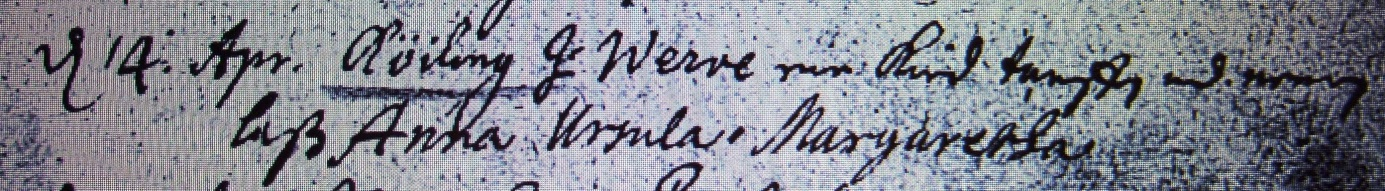 d 14. Apr. Röiling zu Werve ein Kind tauffen und nennen
laß Anna Ursula Margaretha